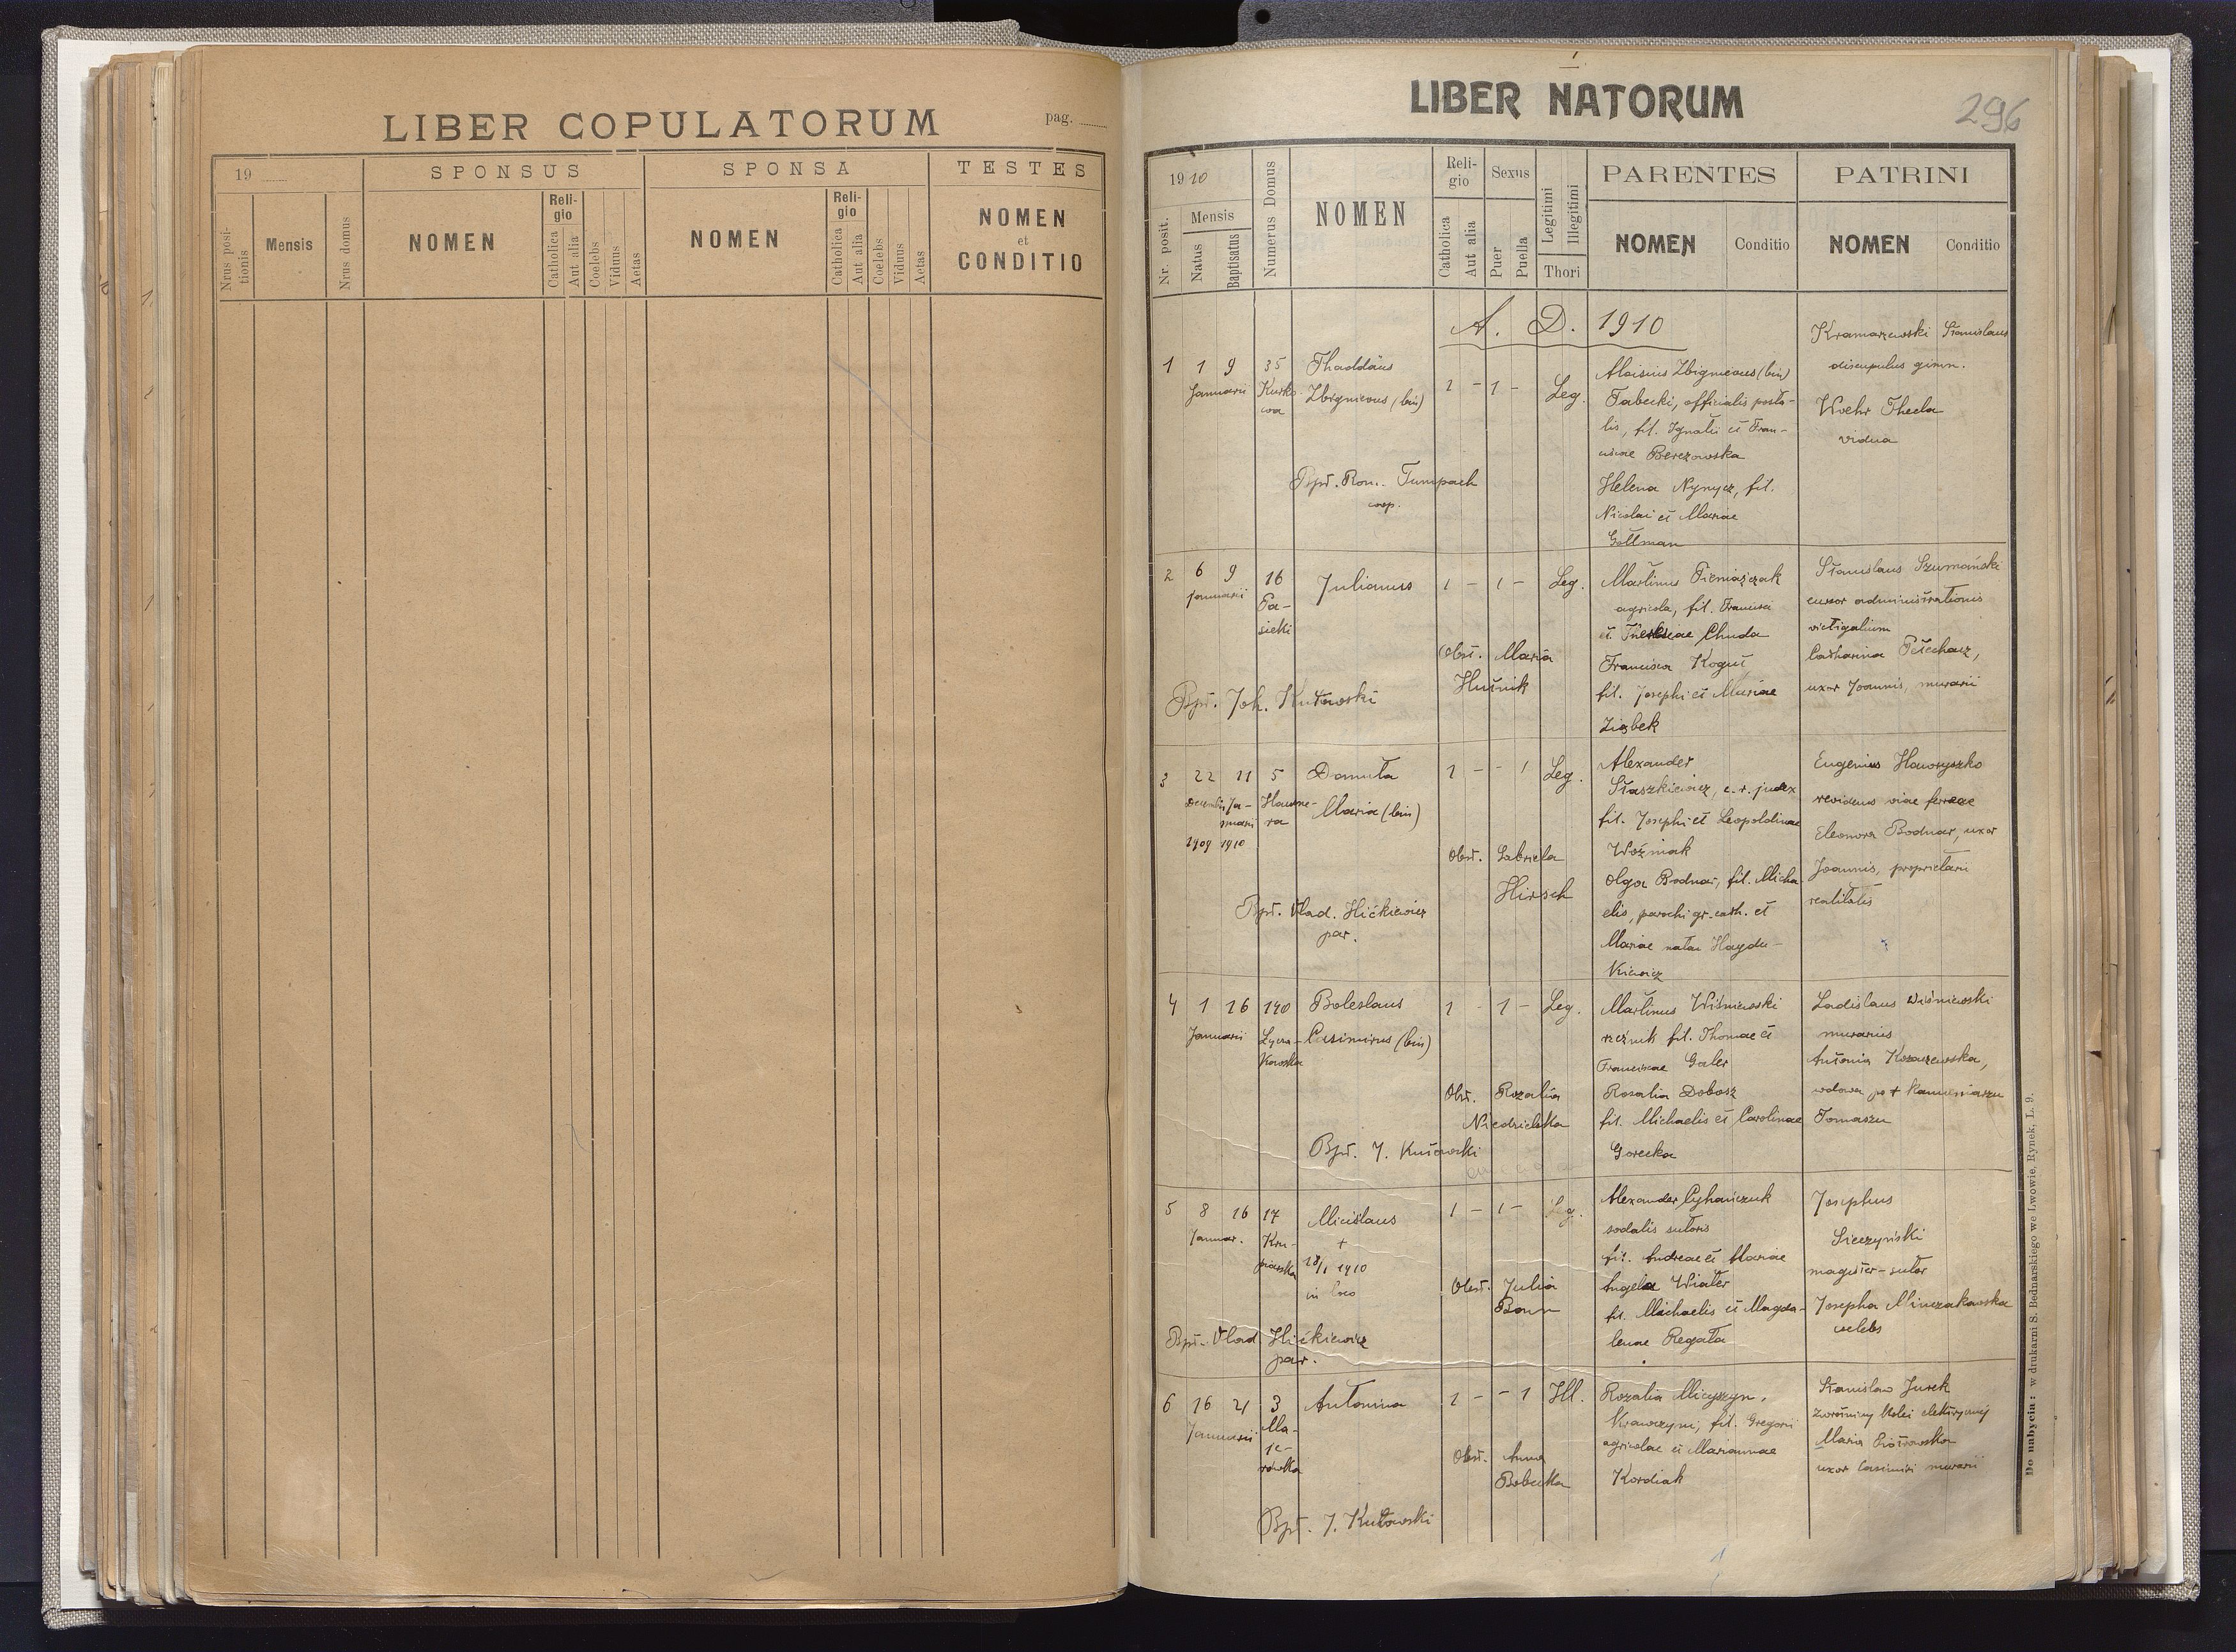 LIBER COPULATORUM
pag.
19
SPONSUS
SPONSA
TESTES
Nrus posi-
tionis
Mensis
Nrus domus
NOMEN
Reli-
gio
Catholica
Aut alia
Coelebs
Viduus
Aetas
NOMEN
Reli-
gio
Catholica
Aut alia
Coelebs
Viduus
Aetas
NOMEN
et
CONDITIO
LIBER NATORUM
296
1910
Nr. posit.
Mensis
Natus
Baptisatus
Numerus Domus
NOMEN
Reli-
gio
Catholica
Aut alia
Sexus
Puer
Puella
Legitimi
Illegitimi
Thori
PARENTES
NOMEN
Conditio
PATRINI
NOMEN
Conditio
A. D. 1910
1 1 9 35
Januarii Kurko-
wa
Thaddäus
Zbigneous (bin)
1 - 1 - Leg.
Aloisius Zbigneous (bin)
Tabecki, officialis posta-
lis, fil. Ignatii et Fran-
ciscae Berezowska
Helena Nynycz, fil.
Nicolai et Mariae
Gollman
Kramarzewski Stanislaus
discupulus gimn.
Woehr Thecla
vidua
Bpt. Rom. Tumpach
coop.
2 6 9 16
Januarii Pa-
sieki
Julianus
1 - 1 - Leg.
Obst. Maria
Hutnik
Martinus Pieniążczak
agricola, fil. Francisci
et Theresiae Chuda
Francisca Kogut
fil. Josephi et Mariae
Ziąbek
Stanislaus Szumański
cursor administrationis
vectigalium
Catharina
uxor Joannis, murarii
Bpt. Joh. Kutowski
3 22 11 5
Decembris Ja-
nuarii
1909 1910
Hausne-
ra
Danuta
Maria (bin)
1 - - 1 Leg.
Obst. Gabriela
Hirsch
Alexander
Staszkiewicz, c. r. judex
fil. Josephi et Leopoldinae
Woźniak
Olga Bodnar, fil. Micha-
elis, parochi gr. cath. et
Mariae natae Hayda-
kiewicz
Eugenius Haworyszko
revidens viae ferreae
Eleonora Bodnar, uxor
Joannis, proprietarii
realitatis
Bpt. Vlad. Hićkiewicz
par.
4 1 16 140
Januarii Lycza-
kowska
Boleslaus
Casimirus (bin)
1 - 1 - Leg.
Obst. Rozalia
Niedzielska
Martinus Wiśniewski
rzeźnik fil. Thomae et
Franciscae Galer
Rosalia Dobosz
fil. Michaelis et Carolinae
Gorecka
Ladislaus Wiśniewski
murarius
Antonia Kozaczewska,
wdowa po + kamieniarzu
Tomaszu
Bpt. J. Kutowski
5 8 16 17
Januar. Kru-
piarska
Micislaus
+
18/1 1910
in loco
1 - 1 - Leg.
Obst. Julia
Baun
Alexander Cyhańczuk
sodalis sutoris
fil. Andreae et Mariae
Angela Wiater
fil. Michaelis et Magda-
lenae Regata
Josephus
Sieczyński
magister-sutor
Josepha Minczakowska
celebs
Bpt. Vlad Hićkiewicz
par.
6 16 21 3
Januarii Ma-
je-
rówka
Antonina
1 - - 1 Ill.
Obst. Anna
Bobecka
Rozalia Micyszyn,
fil. Gregorii
agricolae et Mariannae
Kordiak
Stanislaw Jurek
zwrotniczy kolei elektrycznej
Maria Piotrowska
uxor Casimiri murarii
Bpt. J. Kutowski
Do nabycia: w drukarni S. Bednarskiego we Lwowie, Rynek, L. 9.